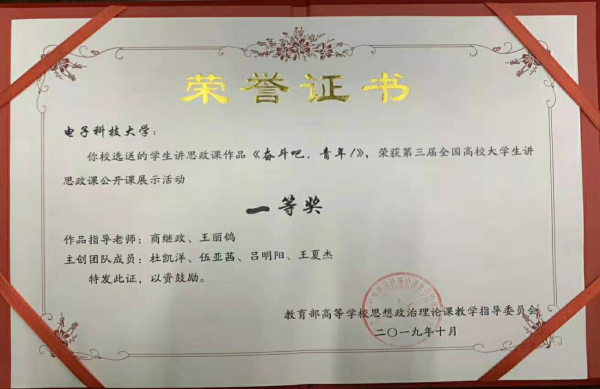 荣誉证书
电子科技大学：
你校选送的学生讲思政课作品《奋斗吧，青年！》，荣获第三届全国高校大学生讲
思政课公开课展示活动
一等奖
作品指导老师：商继政、王丽鸽
主创团队成员：杜凯洋、伍亚茜、吕明阳、王夏杰
特发此证，以资鼓励。
教育部高等学校思想政治理论课教学指导委员会
二〇一九年十月